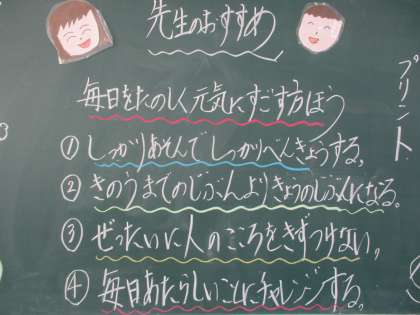 先生のおすすめ
毎日をたのしく元気にすごす方ほう
① しっかりあそんでしっかりべんきょうする。
② きのうまでのじぶんよりきょうのじぶんになる。
③ ぜったいに人のこころをきずつけない。
④ 毎日あたらしいことにチャレンジする。
プリント